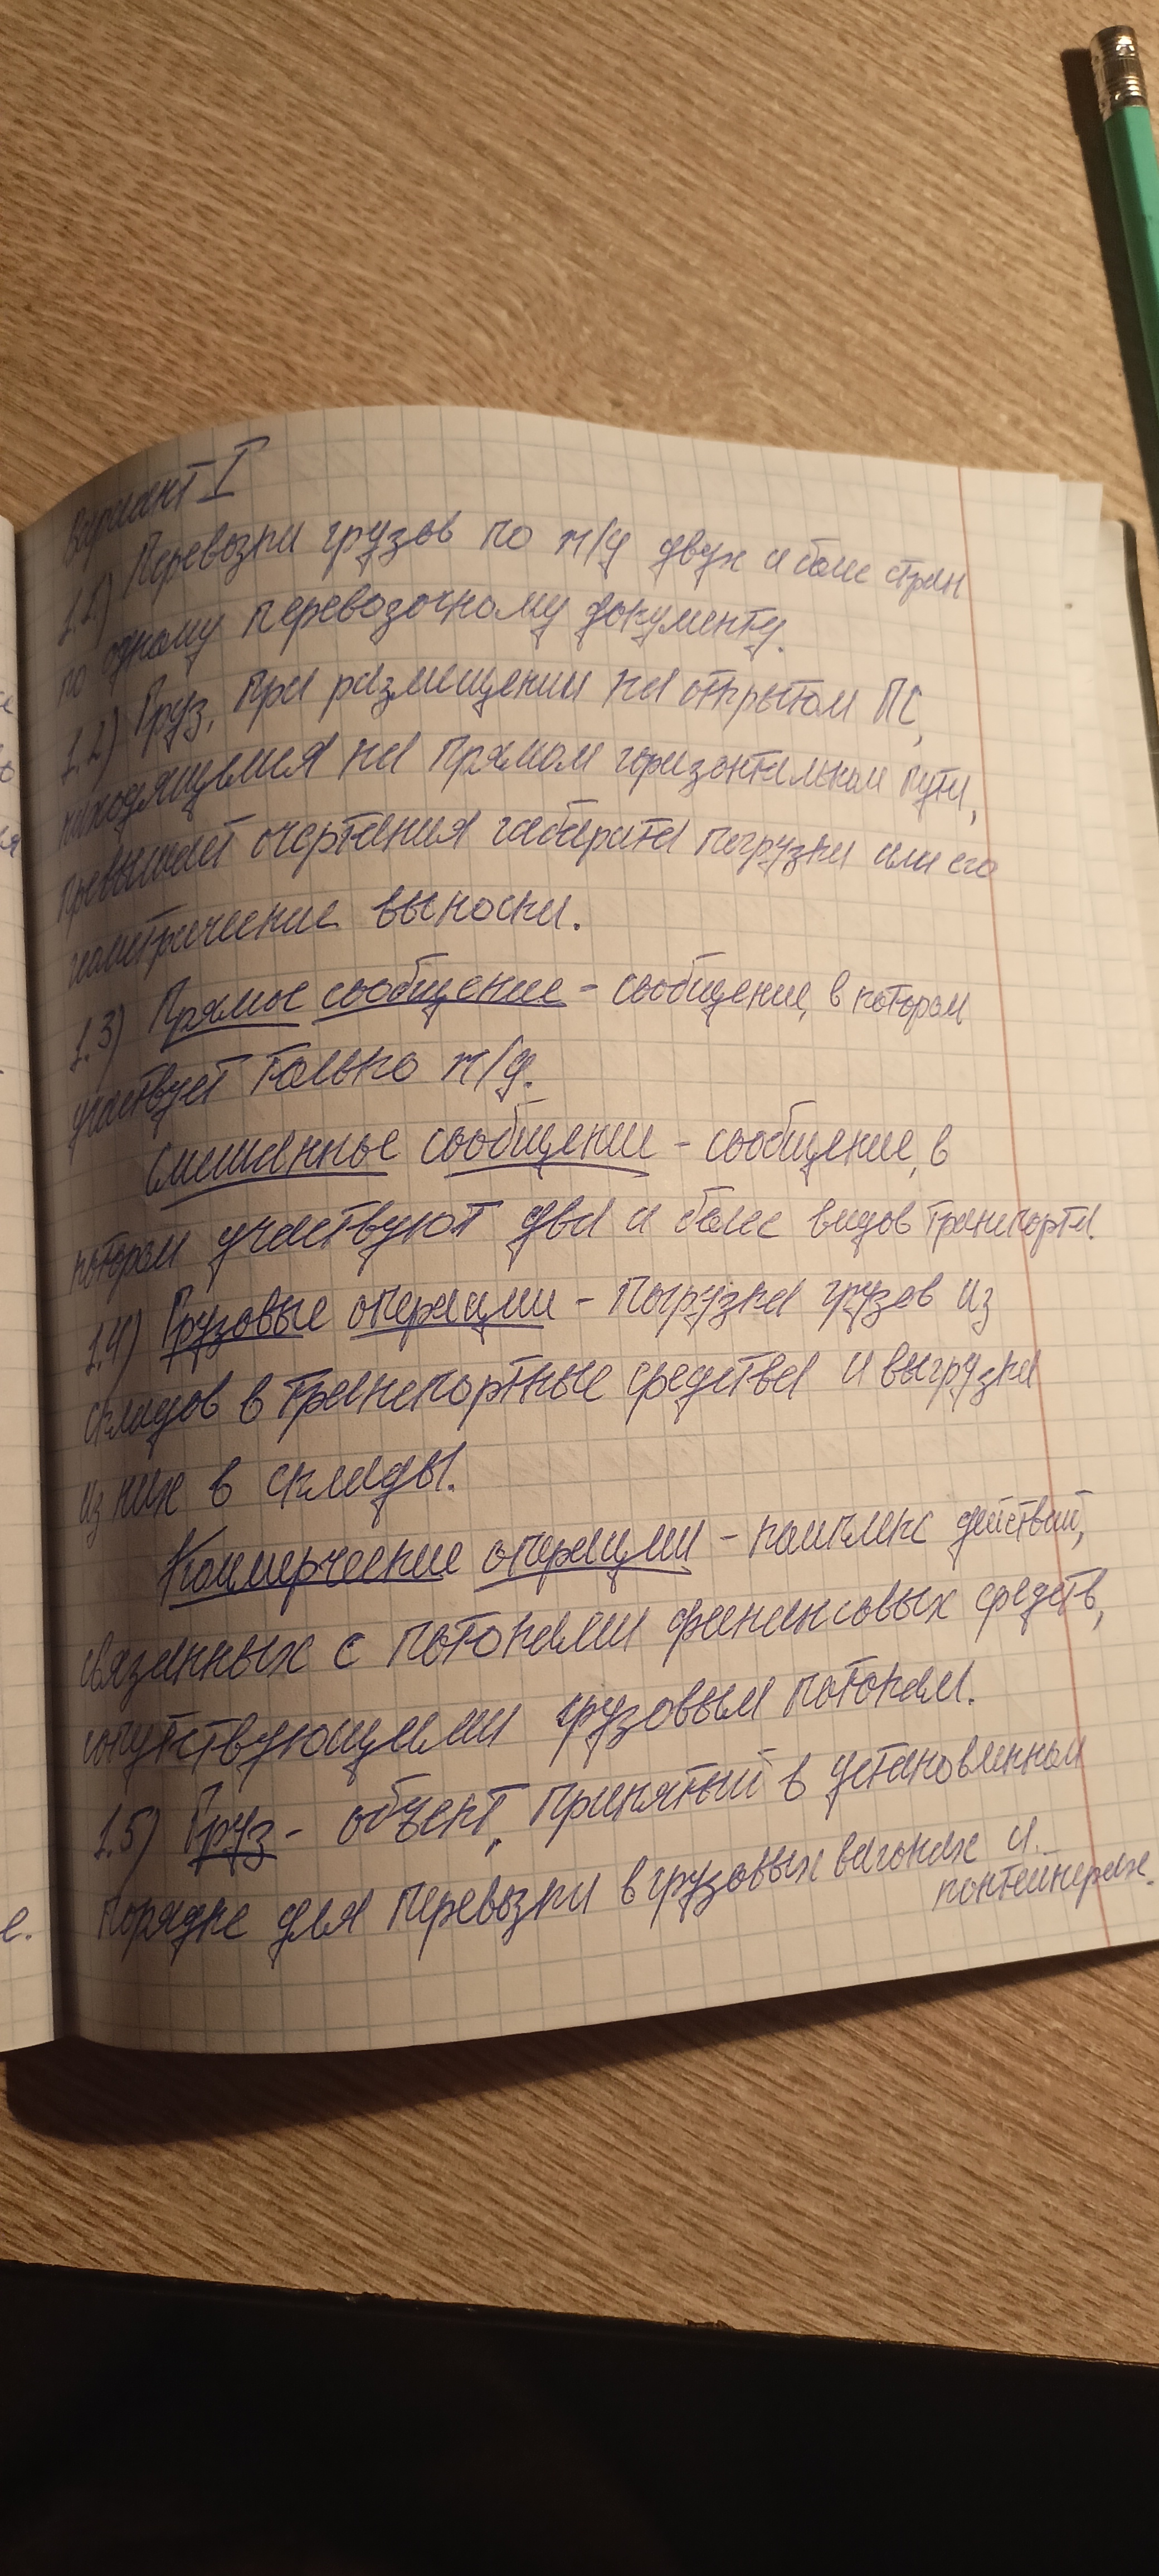 Вариант I
1.1) Перевозки грузов по ж/д двух и более стран
по одному перевозочному документу.
1.2) Груз, при размещении на открытом ПС,
находящемся на прямом горизонтальном пути,
превышает очертания габарита погрузки или его
геометрические выноски.
1.3) Прямое сообщение - сообщение, в котором
участвует только ж/д.
Смешанное сообщение - сообщение, в
котором участвуют два и более видов транспорта.
1.4) Грузовые операции - погрузка грузов из
складов в транспортные средства и выгрузка
из них в склады.
Коммерческие операции - комплекс действий,
связанных с потоками финансовых средств,
сопутствующими грузовым потокам.
1.5) Груз - объект, принятый в установленном
порядке для перевозки в грузовых вагонах и
контейнерах.
е.